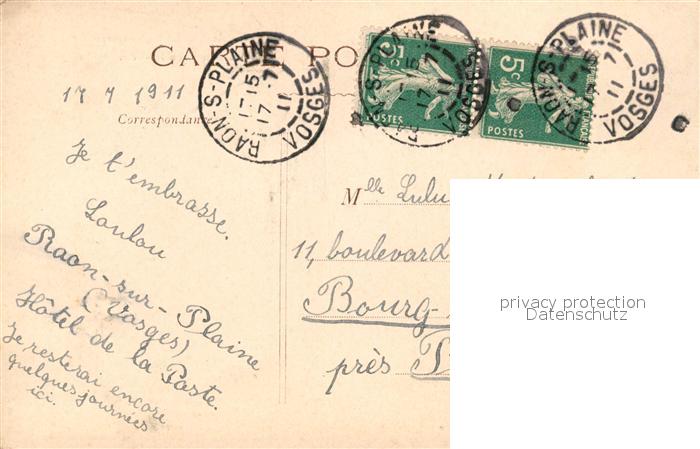 CARTE PO
RAON-S-PLAINE
17 15
17 -7
11
VOSGES
5c
POSTES
RAON-S-PLAINE
17 15
17 7
11
VOSGES
5c
POSTES
RAON-S-PLAINE
15
7
11
VOSGES
17 7 1911
Correspondance
Je t'embrasse.
Loulou
Raon-sur-Plaine
(Vosges)
Hôtel de la Poste.
Je resterai encore
quelques journées
ici.
Mlle Lulu
11, boulevard
Bourg-
près
privacy protection
Datenschutz